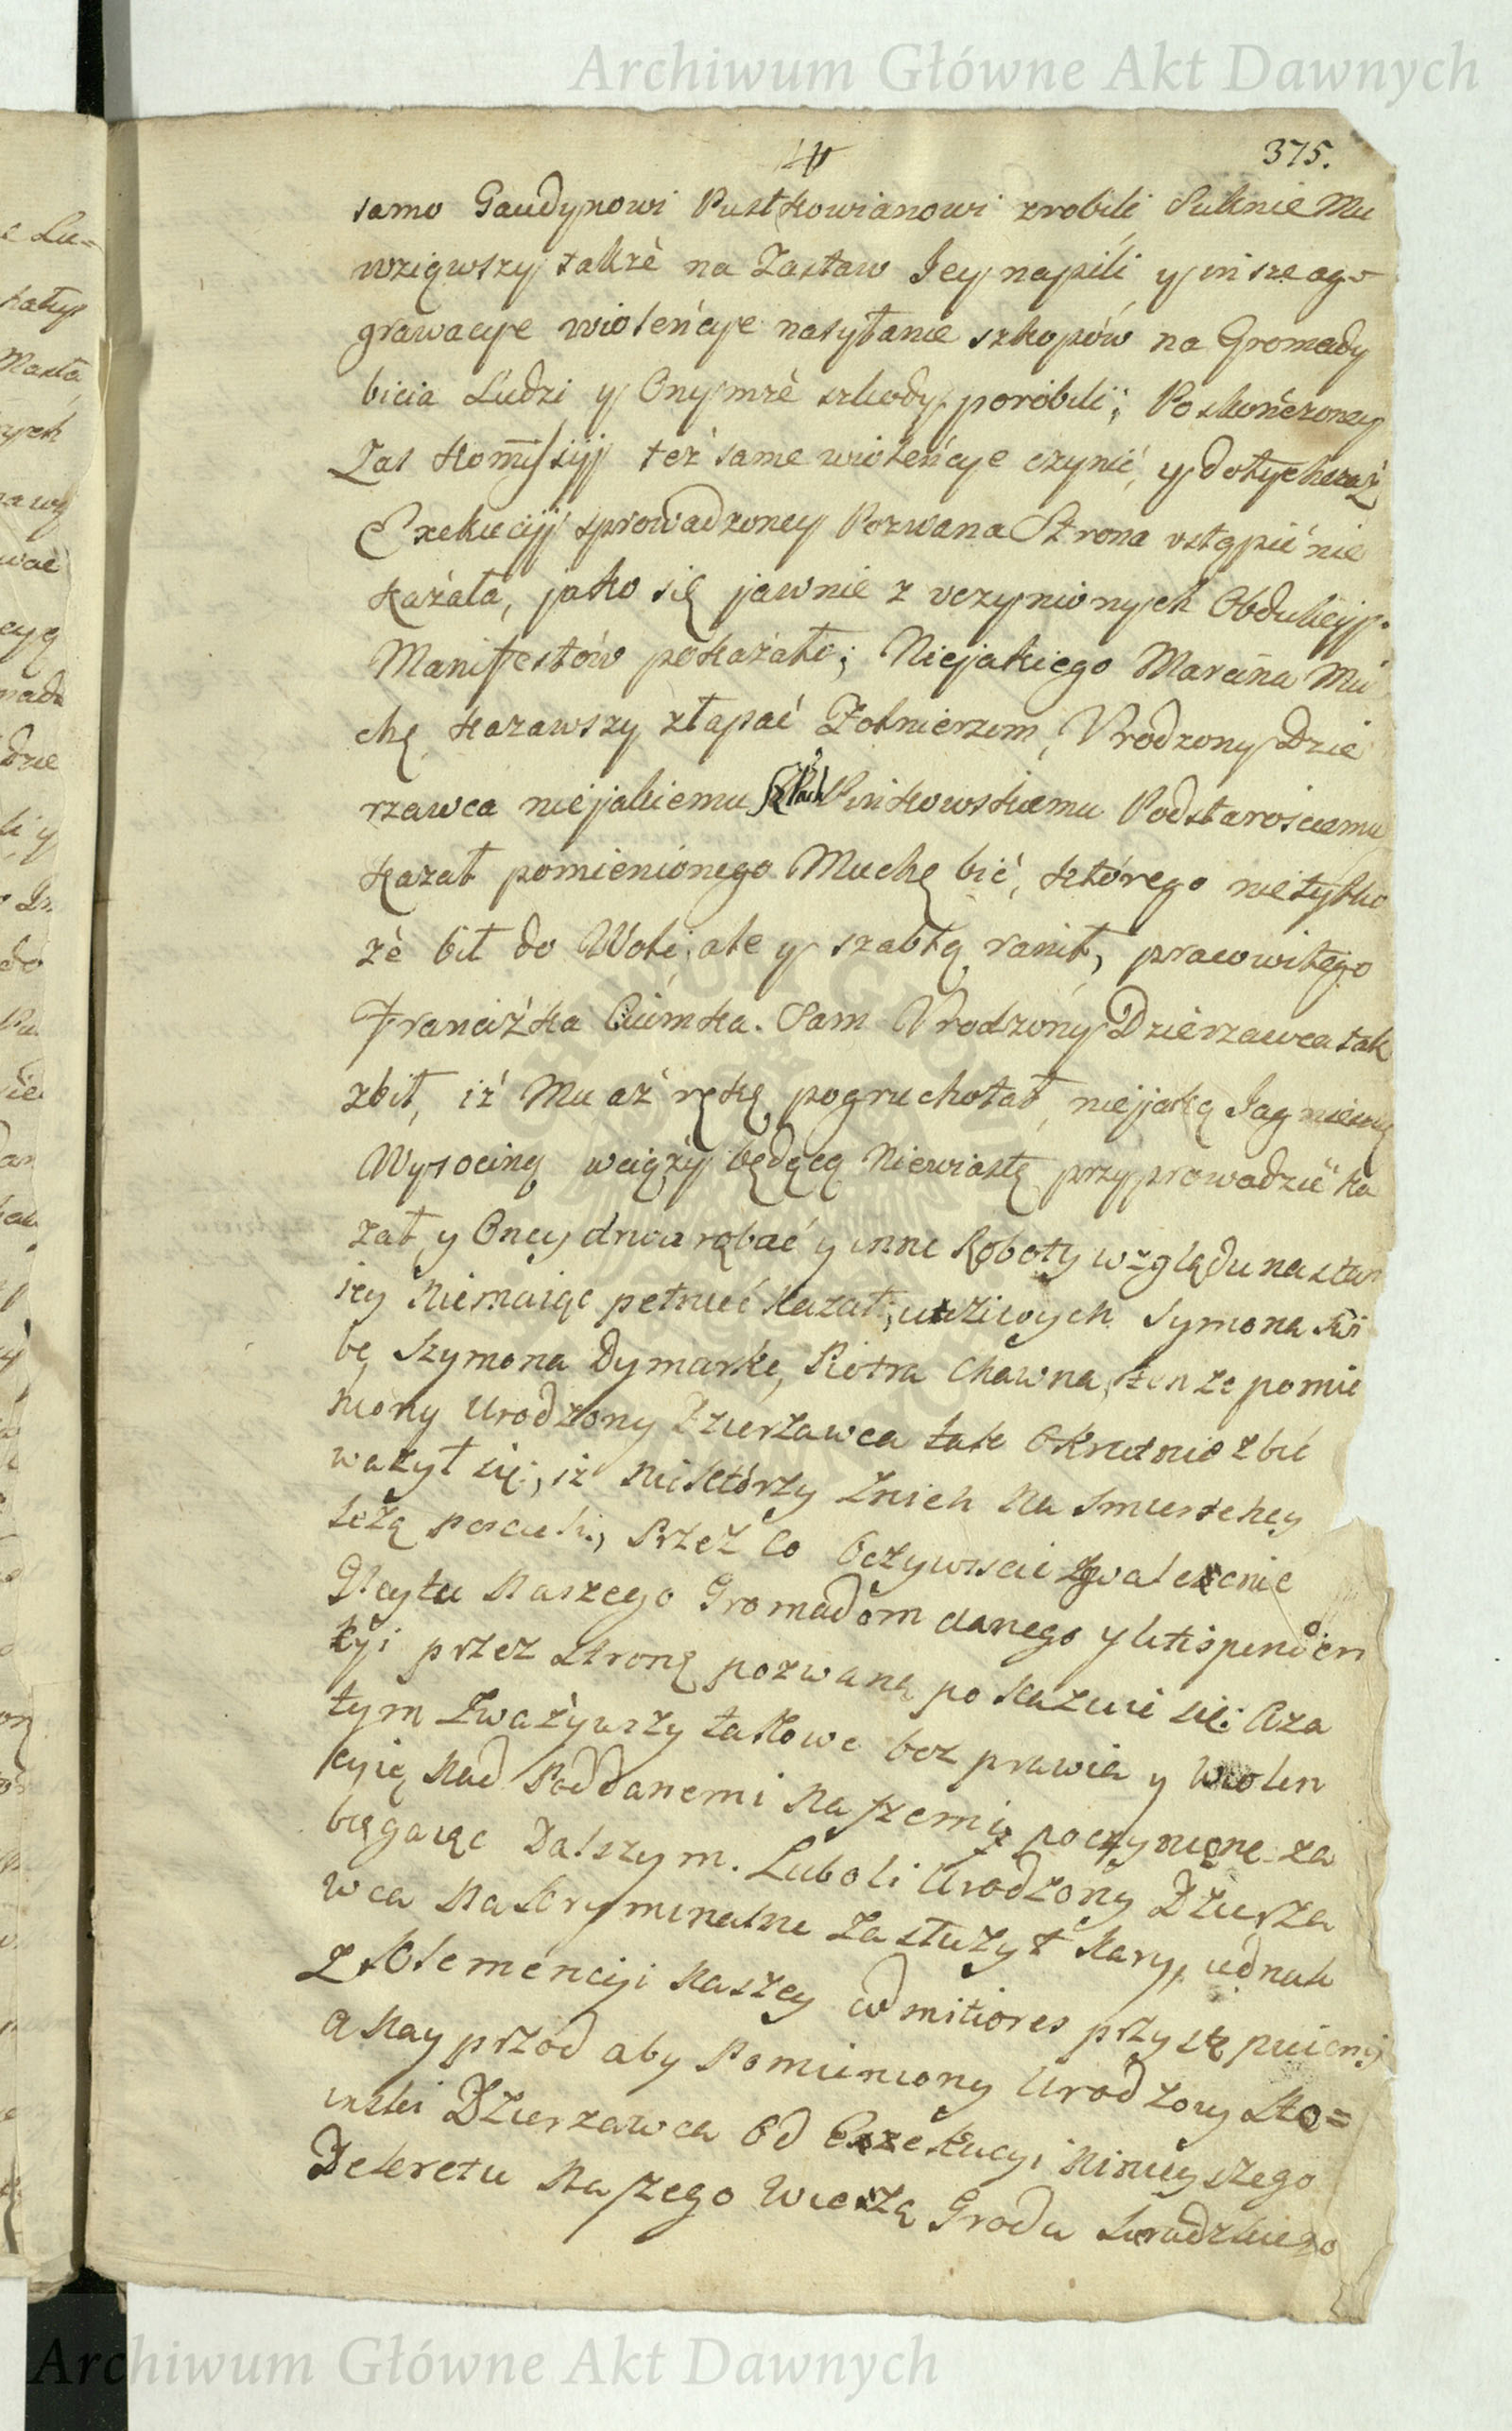 Archiwum Główne Akt Dawnych
375.
samo Gaudynowi Pustkowianowi zrobili Suknie Mu
wziąwszy takżè na Zastaw Jey napili y insze ag-
grawacye wioleńcye nasyłanie szkopów na Gromady
bicia Ludzi y Onymżè szkody porobili; Poskończoney
Zas Kommissyi też same wioleńcye czynić, y dotychczas
Exekucyi sprowadzoney Pozwana Strona ustąpić nie
kazała, jako się jawnie z uczynionych Obdukcyi
Manifestów pokazało; Niejakiego Marcina Mu
chę kazawszy złapać Żołnierzom, Vrodzony Dzie
rzawca niejakiemu Pinkowskiemu Podstarosciemu
kazał pomienionego Muchę bić, którego nietylko
żè bił do Woli, ale y szablą ranił, pracowitego
Franciżka Ciumka. Sam Vrodzony Dzierzawca tak
zbił, iż Mu aż rękę pogruchotał, niejaką Jagniewę
Wysocinę wciąży będącą Niewiastę przyprowadzić ka
zał, y Oney drwa rąbać y inne Roboty względu na stan
iey niemaiąc pełnić kazał, uczciwych Symona Ski
bę, Szymona Dymarkę, Piotra Chawna, tenże pomie
niony Urodzony Dzierzawca tak Okrutnie zbić
ważył się, iż niektórzy Znich Na Smiertelney
leżą poscieli, Przez co Oczywiscie Zgwałcenie
Gleytu Naszego Gromadom danego y litispenden
cyi przez stronę pozwaną pokazuie się. Aza
tym Zważywszy takowe bezprawia y Wiolen
cyię Nad Poddanemi Naszemi poczynione za
biegaiąc Dalszym. Luboli Urodzony Dzierza
wca Na kryminalne Zasłużył kary, iednak
Z klemencyi Naszey ad mitiores przystępuiemy
A Nayprzod aby Pomieniony Urodzony Sto=
inski Dzierzawca Od Exzekucyi Ninieyszego
Dekretu Naszego Wieżą Grodu Siradzkiego
Archiwum Główne Akt Dawnych